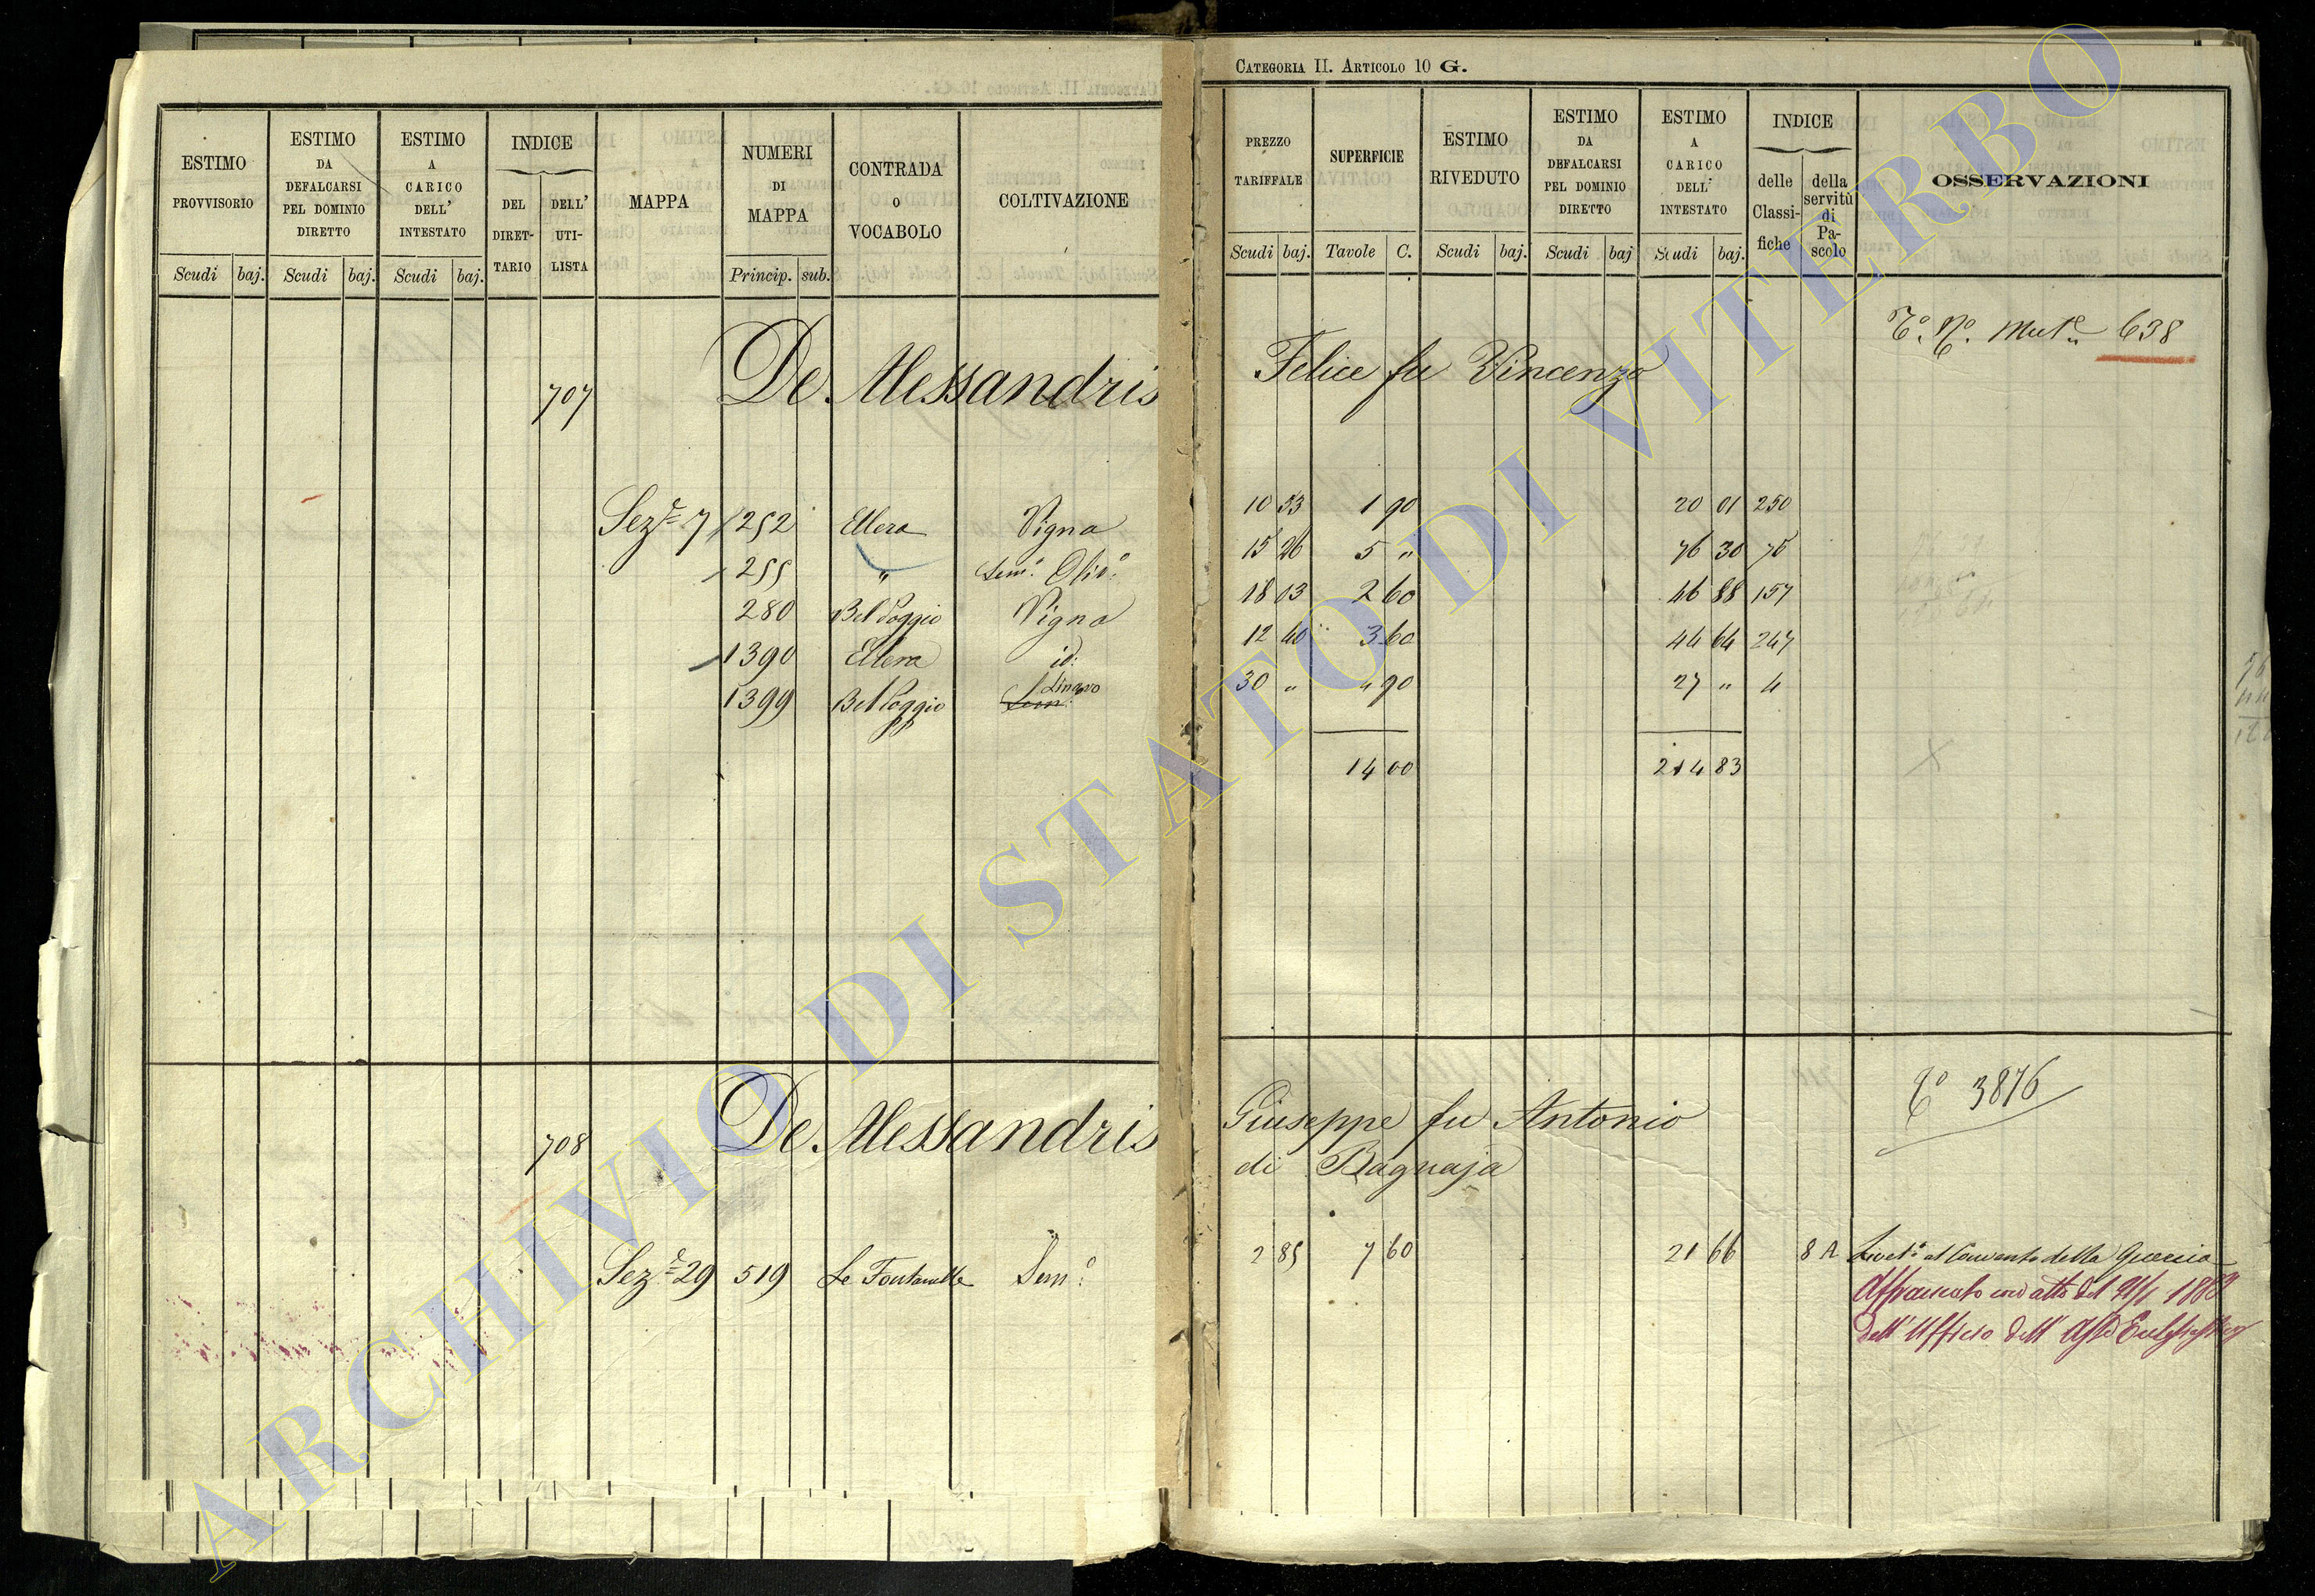 CATEGORIA II. ARTICOLO 10 G.
ESTIMO PROVVISORIO
Scudi baj.
ESTIMO DA DEFALCARSI PEL DOMINIO DIRETTO
Scudi baj.
ESTIMO A CARICO DELL' INTESTATO
Scudi baj.
INDICE
DEL DIRET-TARIO
DELL' UTI-LISTA
MAPPA
NUMERI DI MAPPA
Princip. sub.
CONTRADA O VOCABOLO
COLTIVAZIONE
PREZZO TARIFFALE
Scudi baj.
SUPERFICIE
Tavole C.
ESTIMO RIVEDUTO
Scudi baj.
ESTIMO DA DEFALCARSI PEL DOMINIO DIRETTO
Scudi baj
ESTIMO A CARICO DELL' INTESTATO
Scudi baj.
INDICE
delle Classi-fiche
della servitù di Pa-scolo
OSSERVAZIONI
707 De Alessandris Felice fu Vincenzo 638
Sez.e 7 252 Ellera Vigna 10 53 1 90 20 01 250
255 " Sem.o Oliv.o 15 26 5 " 76 30 76
280 Bel Poggio Vigna 18 03 2 60 46 88 157
1390 Ellera id: 12 40 3 60 44 64 247
1399 Bel Poggio 30 " " 90 27 " 4
14 00 214 83
708 De Alessandris Giuseppe fu Antonio 3876
di Bagnaja
Sez.e 29 519 Le Fontanelle Sem.o 2 85 7 60 21 66 8 A Livel.o al Convento della Quercia
Affrancato con atto del
dell' Ufficio dell'
ARCHIVIO DI STATO DI VITERBO